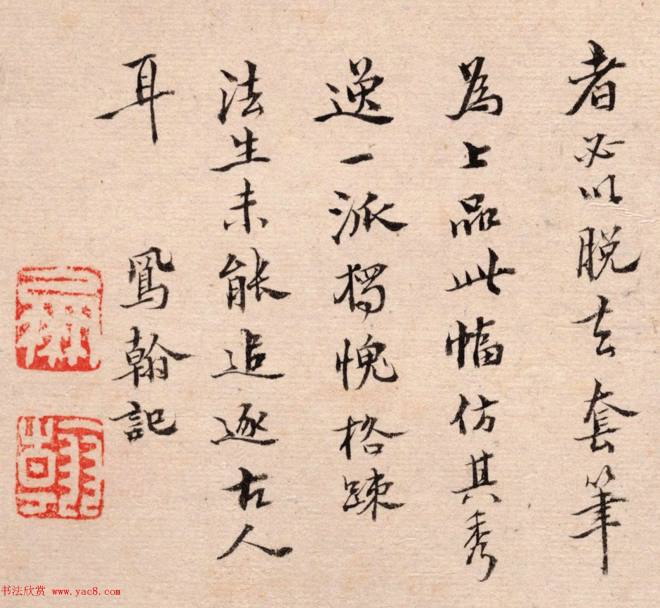 者必以脱去套筆
為上品此幅仿其秀
逸一派獨愧格踈
法生未能追逐古人
耳 鳳翰記
书法欣赏 www.yac8.com